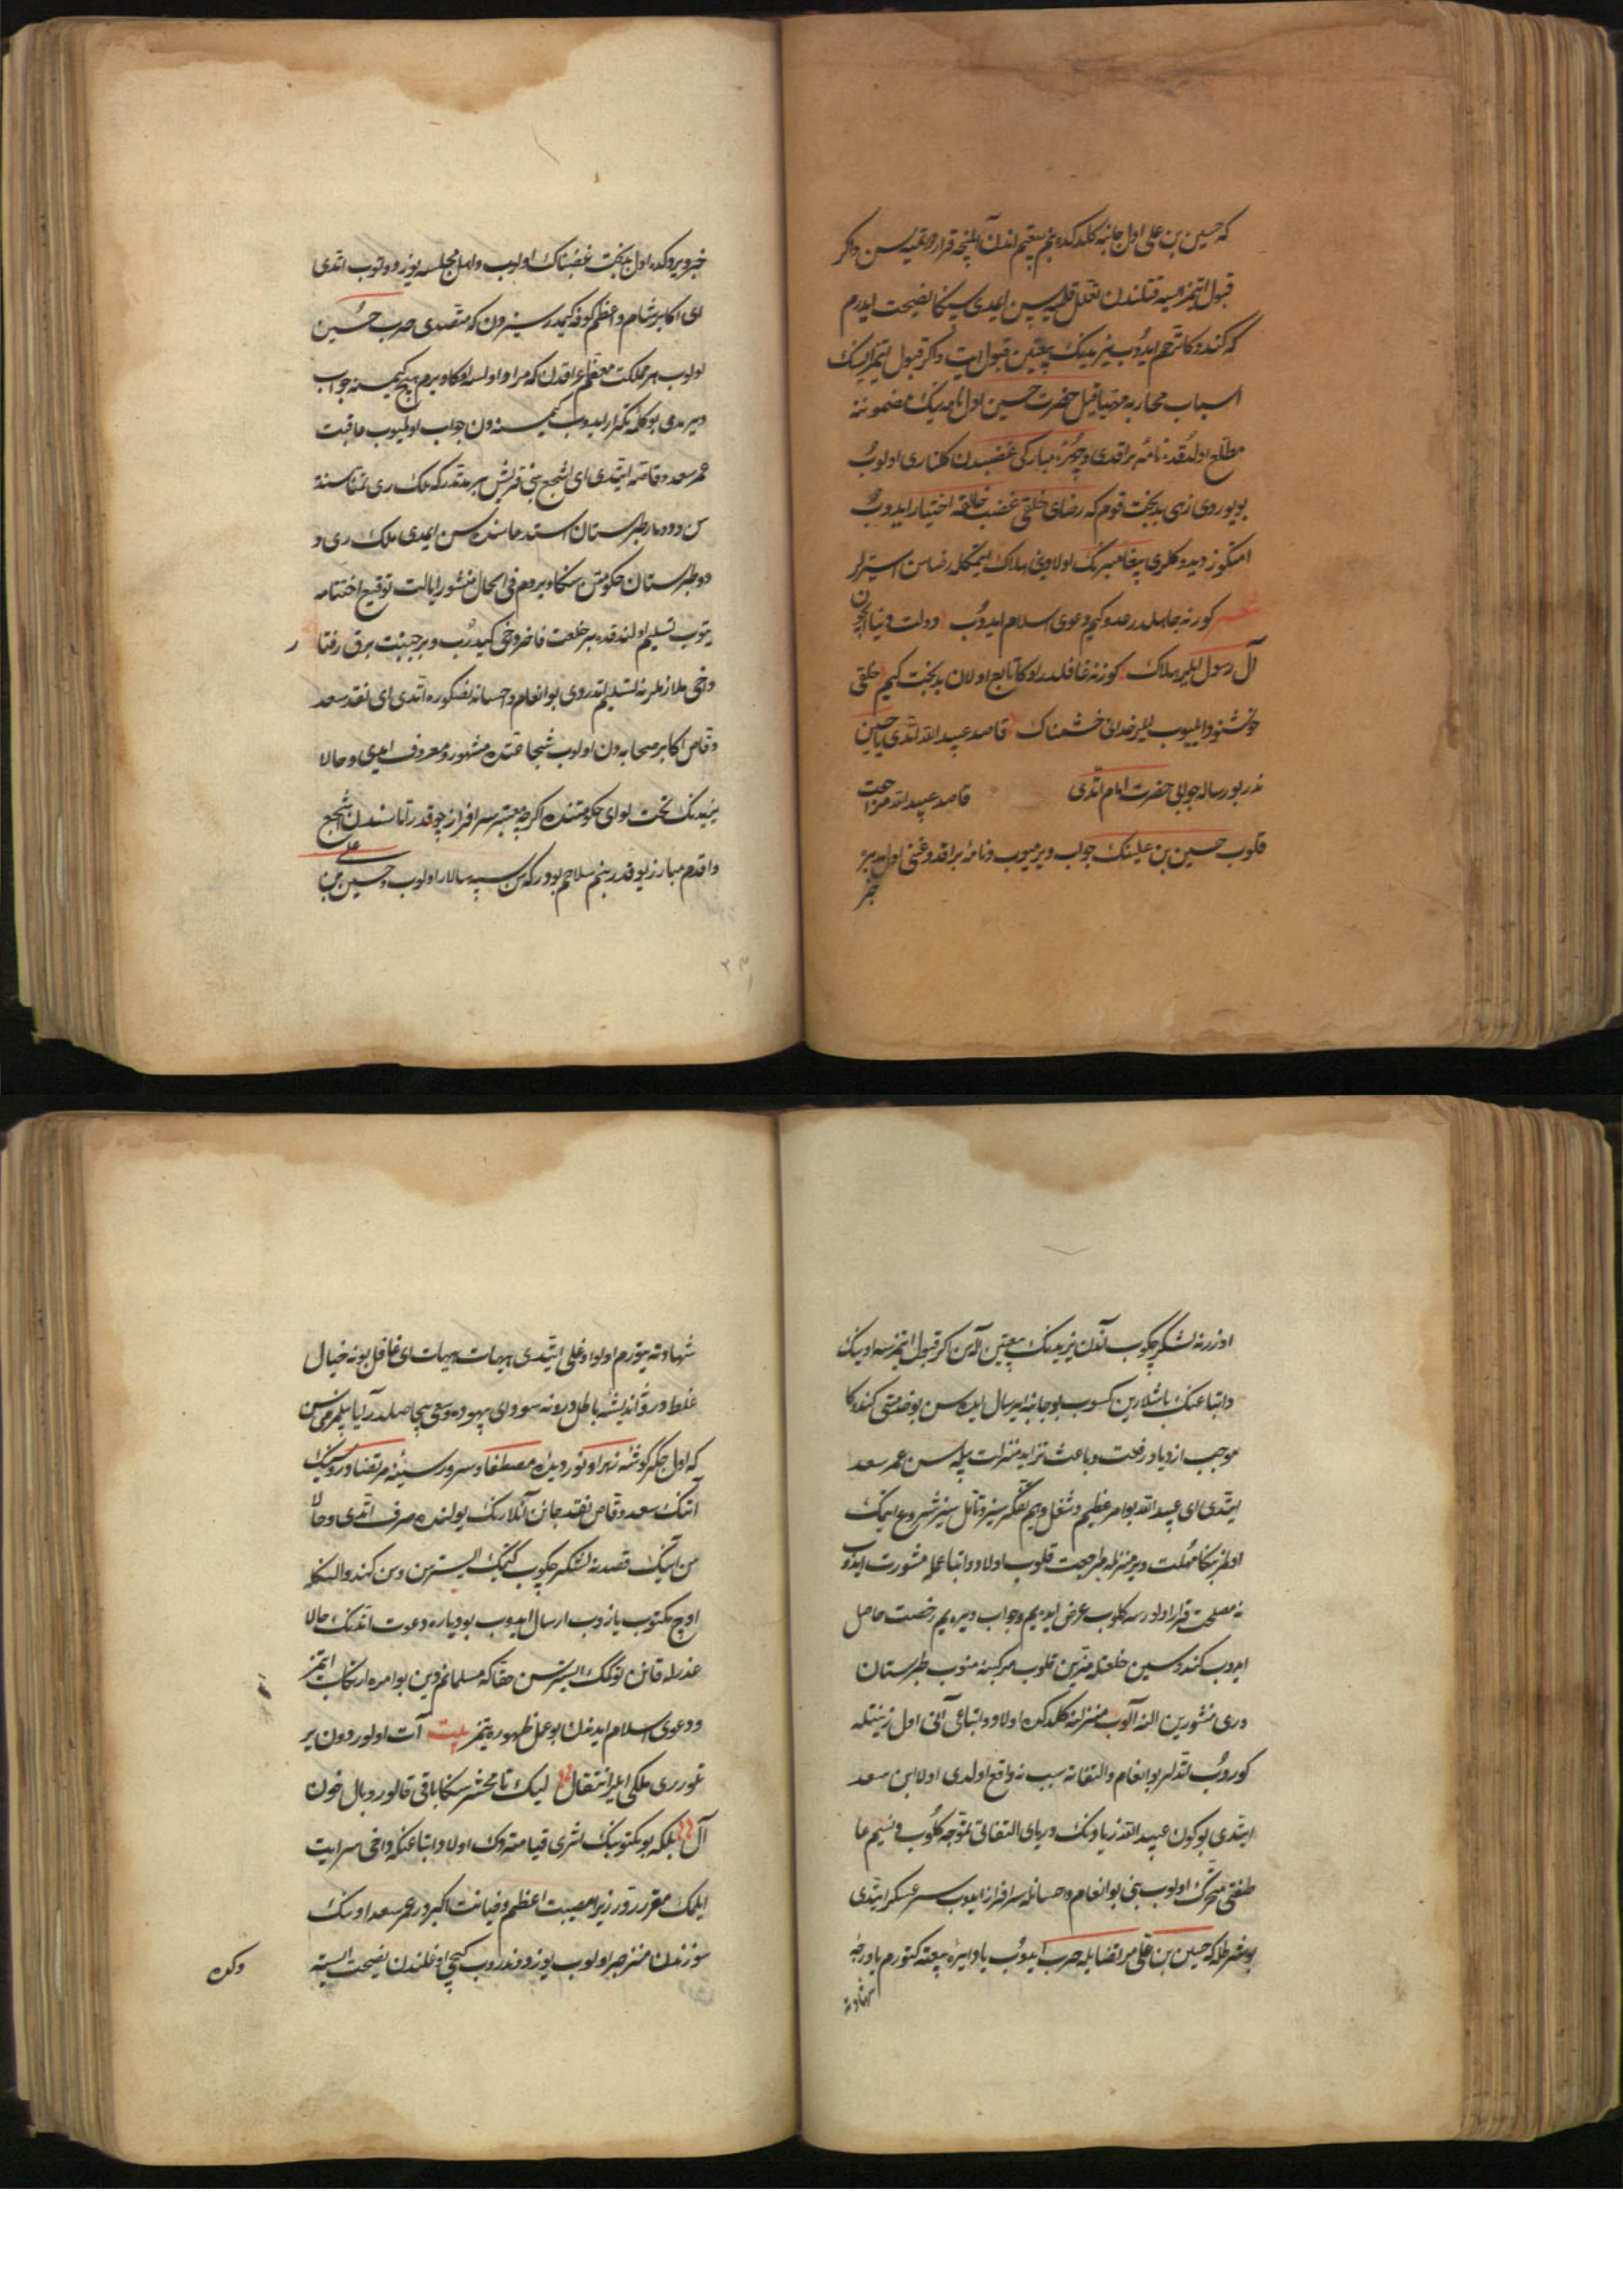 که حسین بن علی اول جانبه کلدکده بنم بیعتیم اندن آلینجه قرار ویرمیه سن واکر
قبول ایتمز ایسه قتلندن تغافل قلمیه سن ایمدی سیکا نصیحت ایدرم
که کندوکا ترحم ایدوب یزیدینک بیعتین قبول ایت واکر قبول ایتمز ایسنک
اسباب محاربه مهیا قیل حضرت حسین اول نامه نینک مضموننه
مطلع اولدقده نامه براقدی و چهره مبارکی غضبدن کلناری اولوب
بویوردی زهی بدبخت قوم که رضای خلقی غضب خالقه اختیار ایدوب
امتکوز دیدوکلری پیغامبرنک اولادینی هلاک ایتمکله رضاسن استرلر
شعر کور نه جاهلدر عدو کیم دعوی اسلام ایدوب دولت دنیا ایچون
آل رسول ایلر هلاک کور نه غافلدر اوکا تابع اولان بدبخت کیم خلقی
خوشنود ایلیوب ایلر خدایی خشمناک قاصد عبید الله اتدی یا حسین
ندر بو رساله جوابی حضرت امام اتدی قاصد عبید الله مراجعت
قلوب حسین بن علینک جواب ویرمیوب و نامه براقدوغنی اول بدبیره
خبر
خبر ویردکده اول بدبخت غضبناک اولوب و اهل مجلسه یوز دوتوب اتدی
ای اکابر شام و اعظم کوفه کیمدر سیزدن که متصدی حرب حسین
اولوب هر مملکت معظم عراقدن که مرادی اولسه اوکا ویرم هیچ کیمسنه جواب
ویرمدی بو کلمه تکرار ایدوب کیمسنه دن جواب اولمیوب عاقبت
عمر سعد وقاصه ایتدی ای اشجع بنی قریش بیر مدتدر که ملک ری تمناسنده
سن و دیار طبرستان استدعاسنده سن ایمدی ملک ری و
و طبرستان حکومتن سکا ویردم فی الحال منشور ایالت توقیع اختتامه
یتوب تسلیم اولندقده بیر خلعت فاخر دخی کیدرب و بیر جنیبت برق رفتا
ر
دخی ملازملرنه تسلیم اتدروی بو انعام و احسانه نصکره اتدی ای نقد سعد
وقاص اکابر صحابه دن اولوب شجاعتده مشهور و معروف ایدی و حالا
یزیدنک تحت لوای حکومتنده اکرچه معتبر سرافراز چوقدر اما سندن اشجع
و اقدم مبارز یوقدر بنم سلاحم بودر که سن سپه سالار اولوب و حسین بن علی
اوزرنه لشکر چکوب آندن یزیدنک بیعتین آله سن اکر قبول ایتمزسه اونک
و اتباعنک باشلارین کسوب بو جانبه ایرسال ایله سن بو خدمتی کندوکا
موجب ازدیاد رفعت و باعث تزاید منزلت بیله سن عمر سعد
ایتدی ای عبید الله بو امر عظیم و شغل و یم تفکرسیز و تأملسیز شروع ایتمک
اولمز بکا مهلت ویر منزلمه مراجعت قلوب اولاد و اتباعمله مشورت ایدوب
نه مصلحت قرار اولورسه کلوب عرض ایدیم و جواب ویریم رخصت حاصل
ایدوب کندوسین خلعتله مزین قلوب مرکبنه منوب طبرستان
و ری منشورین النه آلوب منزلنه کلدکده اولاد و اتباعی آنی اول زینتله
کوروب اتدلر بو انعام و التفاته سبب نه واقع اولدی اولا ابن سعد
ایتدی بو کون عبید الله زیادونک دریای التفاتی تموجه کلوب و نسیم عا
طفتی متحرک اولوب بنی بو انعام و احسانله سرافراز ایدوب سر عسکر ایتدی
بو شرطله که حسین بن علی مرتضا ایله حرب ایدوب یا دایره بیعته کتورم یا درجه
شهادته
شهادته یتورم اولو اوغلی ایتدی هیهات هیهات ای غافل بو نه خیال
غلط دور و اندیشه باطل دور و نه سودای بیهوده و سعی بیحاصلدر آیا بیلمزمی سن
که اول جکر کوشه زهرا و نور دیده مصطفا و سرور سینه مرتضا دور سنک
آتنک سعد وقاص نقد جانن آنلارنک یولنده صرف اتدی و حالا
سن انک قصدنه لشکر چکوب کتمک ایستر سن و سن کندو الکله
اوچ مکتوب یازوب ارسال ایدوب بو دیاره دعوت اتدنک حالا
غدرله قانن توکمک ایسترسن حقا که مسلمانم دین بو امره ارتکاب ایتمز
و دعوی اسلام ایدندن بو عمل ظهوره یتمز بیت آت اولور دون بر
تلور ری ملکی ایلر انتقال لیک تا محشر سکا باقی قالور وبال خون
آل بلکه بو مکتوبنک اثری قیامته دک اولاد و اتباعنکه دخی سرایت
ایلمک مقرردور زیرا مصیبت اعظم و خیانت اکبردر عمر سعد اونک
سوزندن منزجر اولوب یوز دوندروب کیچی اوغلندن نصیحت ایسته
دکده